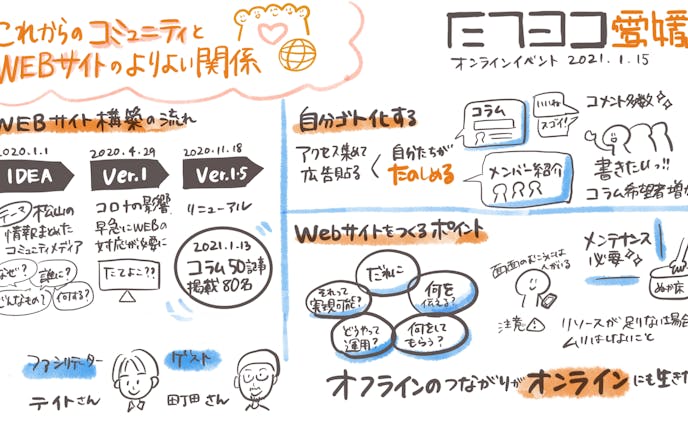 これからのコミュニティと
WEBサイトのよりよい関係
タテヨコ愛媛
オンラインイベント 2021.1.15
WEBサイト構築の流れ
2020.1.1
IDEA
テーマ 松山の
情報まとめた
コミュニティメディア
なぜ?
誰に?
どんなもの?
何する?
2020.4.29
Ver.1
コロナの影響
早急にWEBの
対応が必要に
たてよこ??
2020.11.18
Ver.1.5
リニューアル
2021.1.13
コラム50記事
掲載80名
ファシリテーター
テイトさん
ゲスト
町田さん
自分ゴト化する
アクセス集めて
広告貼る
<
自分たちが
たのしめる
コラム
メンバー紹介
いいね
スゴイ!
コメント多数
書きたいっ!!
コラム希望者増か
Webサイトをつくるポイント
だれに
何を
伝える?
何をして
もらう?
どうやって
運用?
それって
実現可能?
画面のむこうには
人がいる
メンテナンス
必要
ぬか床
注意
リソースが足りない場合
ムリはしないこと
オフラインのつながりがオンラインにも生きた